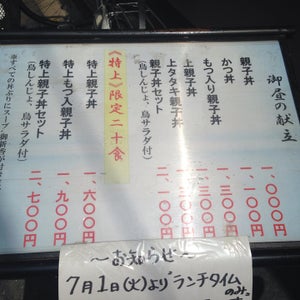 御昼の献立
親子丼 一、〇〇〇円
かつ丼 一、〇〇〇円
もつ入り親子丼
上親子丼
上タタキ親子丼
親子丼セット
(鳥しんじょ、鳥サラダ付)
《特上》限定二十食
特上親子丼 一、六〇〇円
特上もつ入親子丼 一、九〇〇円
特上親子丼セット 二、七〇〇円
(鳥しんじょ、鳥サラダ付)
※すべての丼ぶりにスープ・御新香が付
〜お知らせ〜
7月1日(火)よりランチタイムのみ